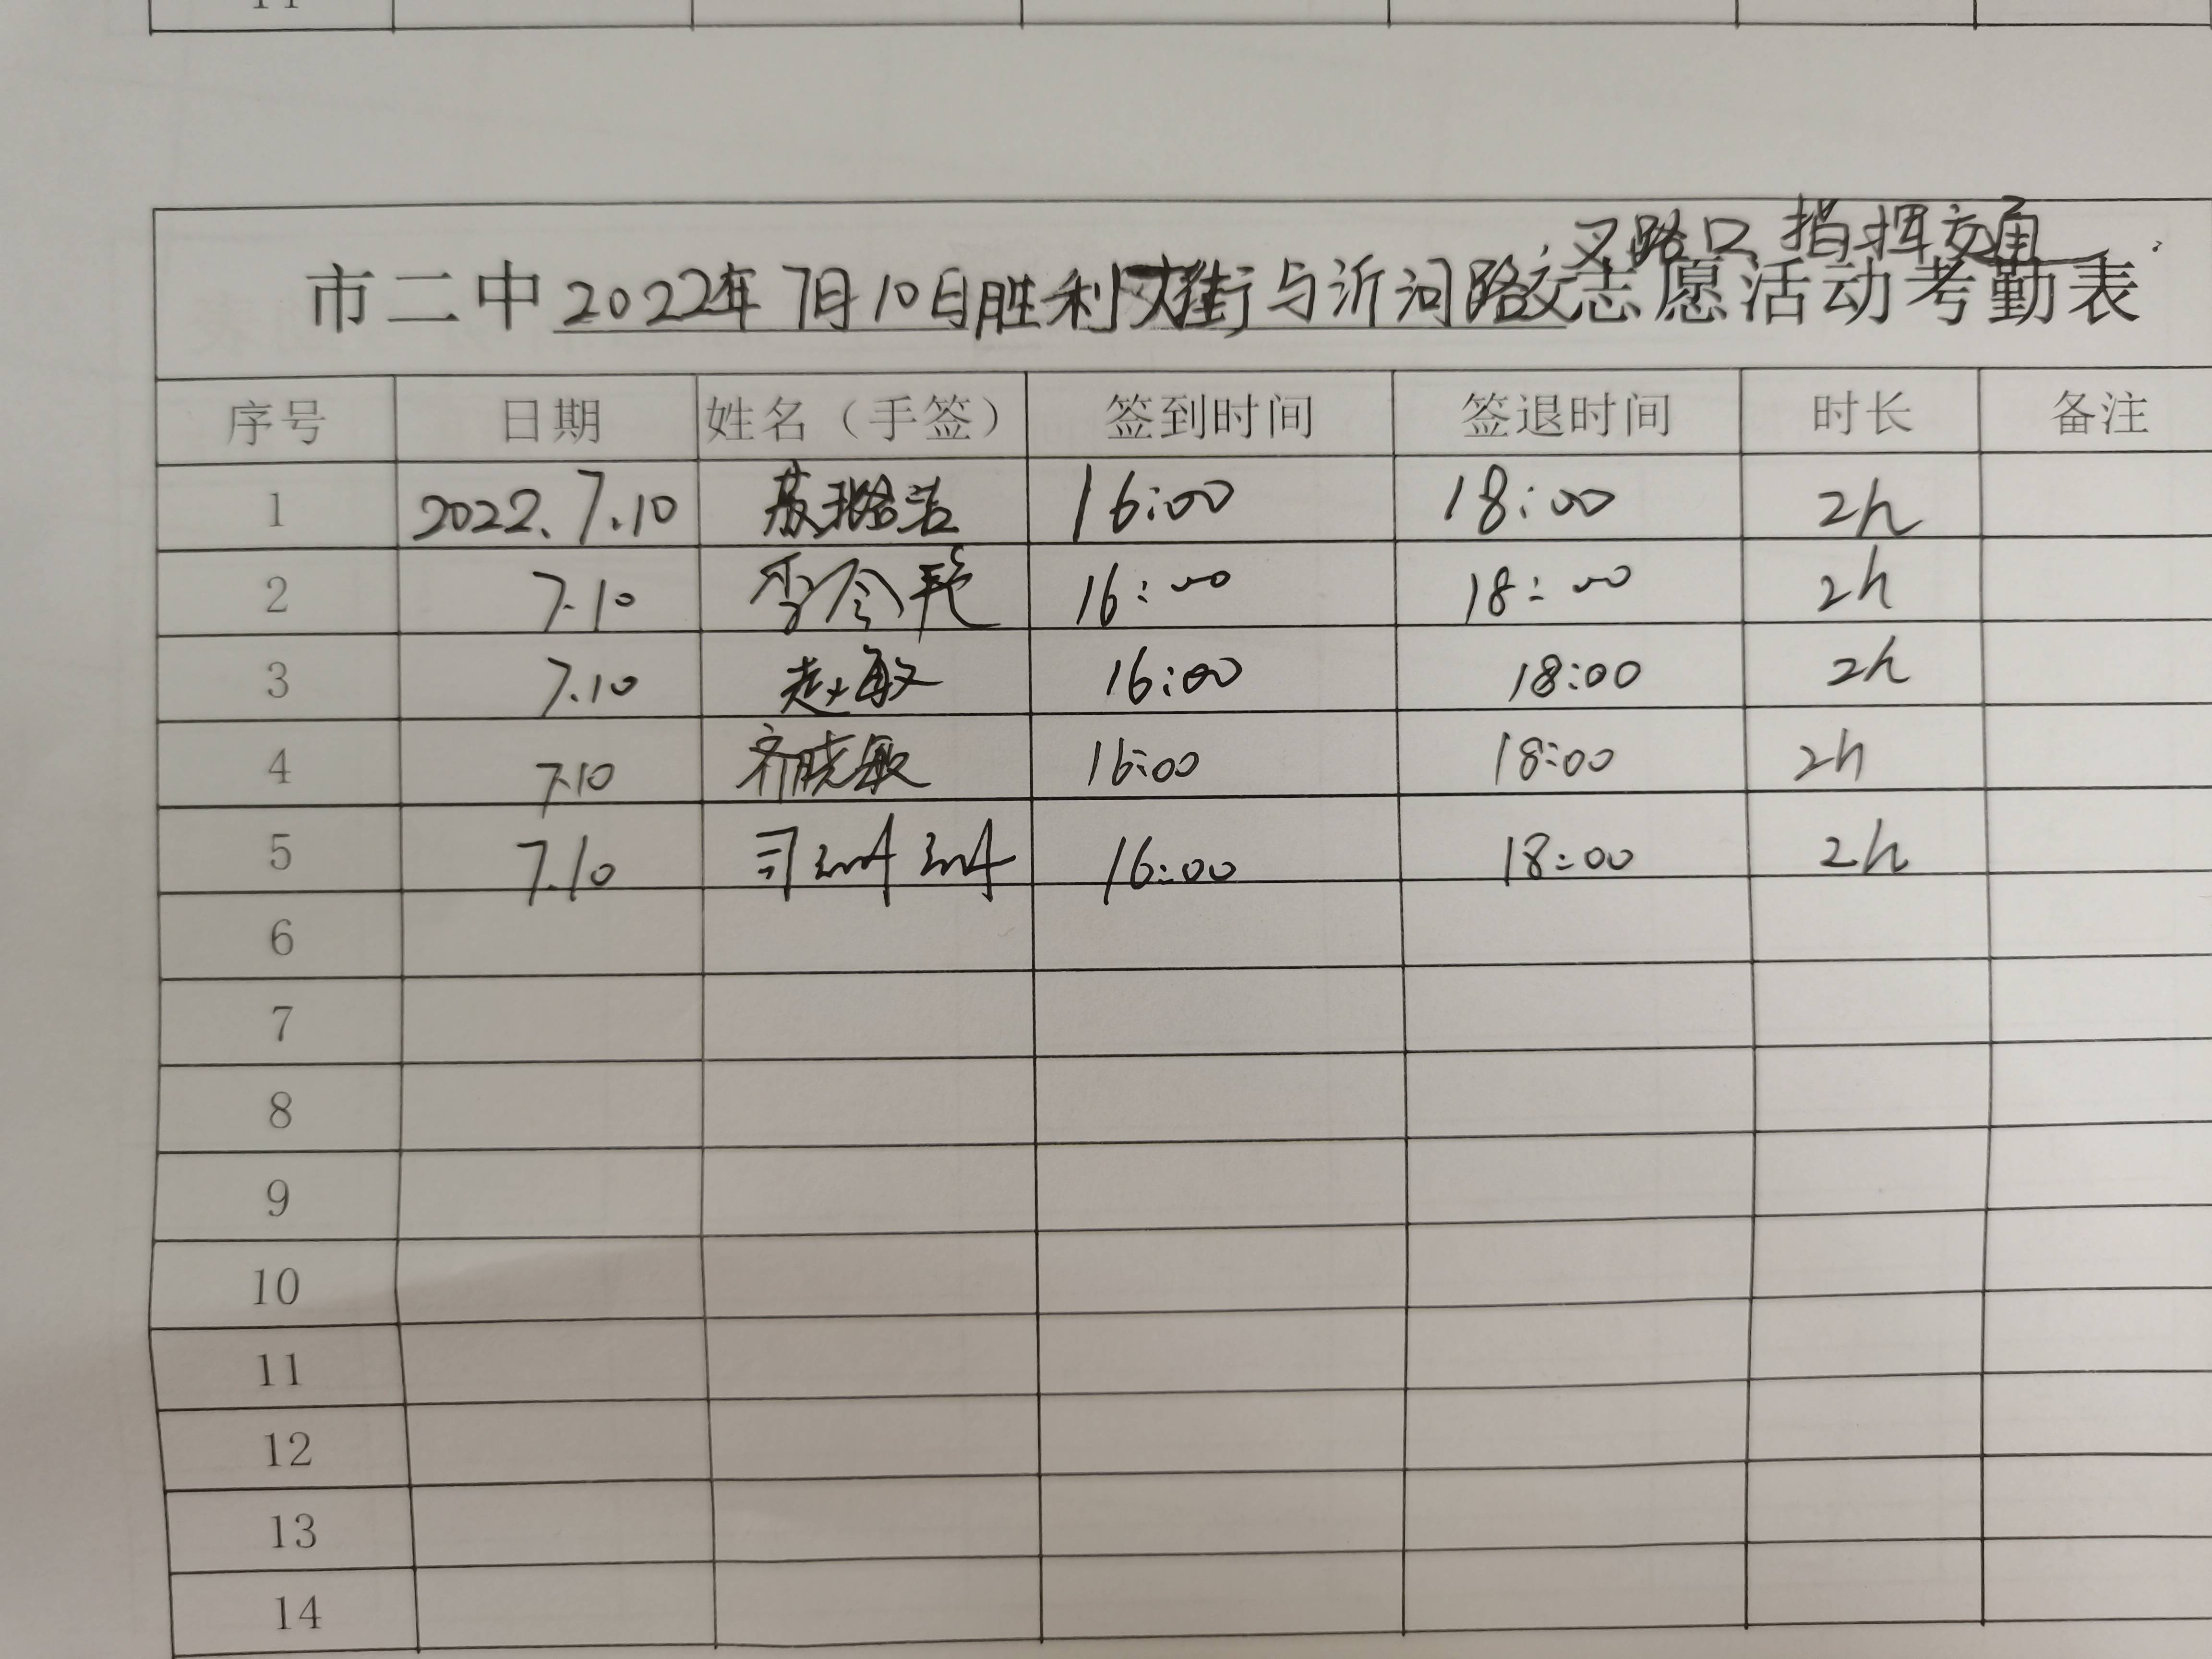 叉路口 指挥交通
市二中2022年7月10日胜利大街与沂河路交志愿活动考勤表
序号 日期 姓名（手签） 签到时间 签退时间 时长 备注
1 2022.7.10 16:00 18:00 2h
2 7.10 李令艳 16:00 18:00 2h
3 7.10 赵敏 16:00 18:00 2h
4 7.10 齐晓敏 16:00 18:00 2h
5 7.10 司 16:00 18:00 2h
6
7
8
9
10
11
12
13
14